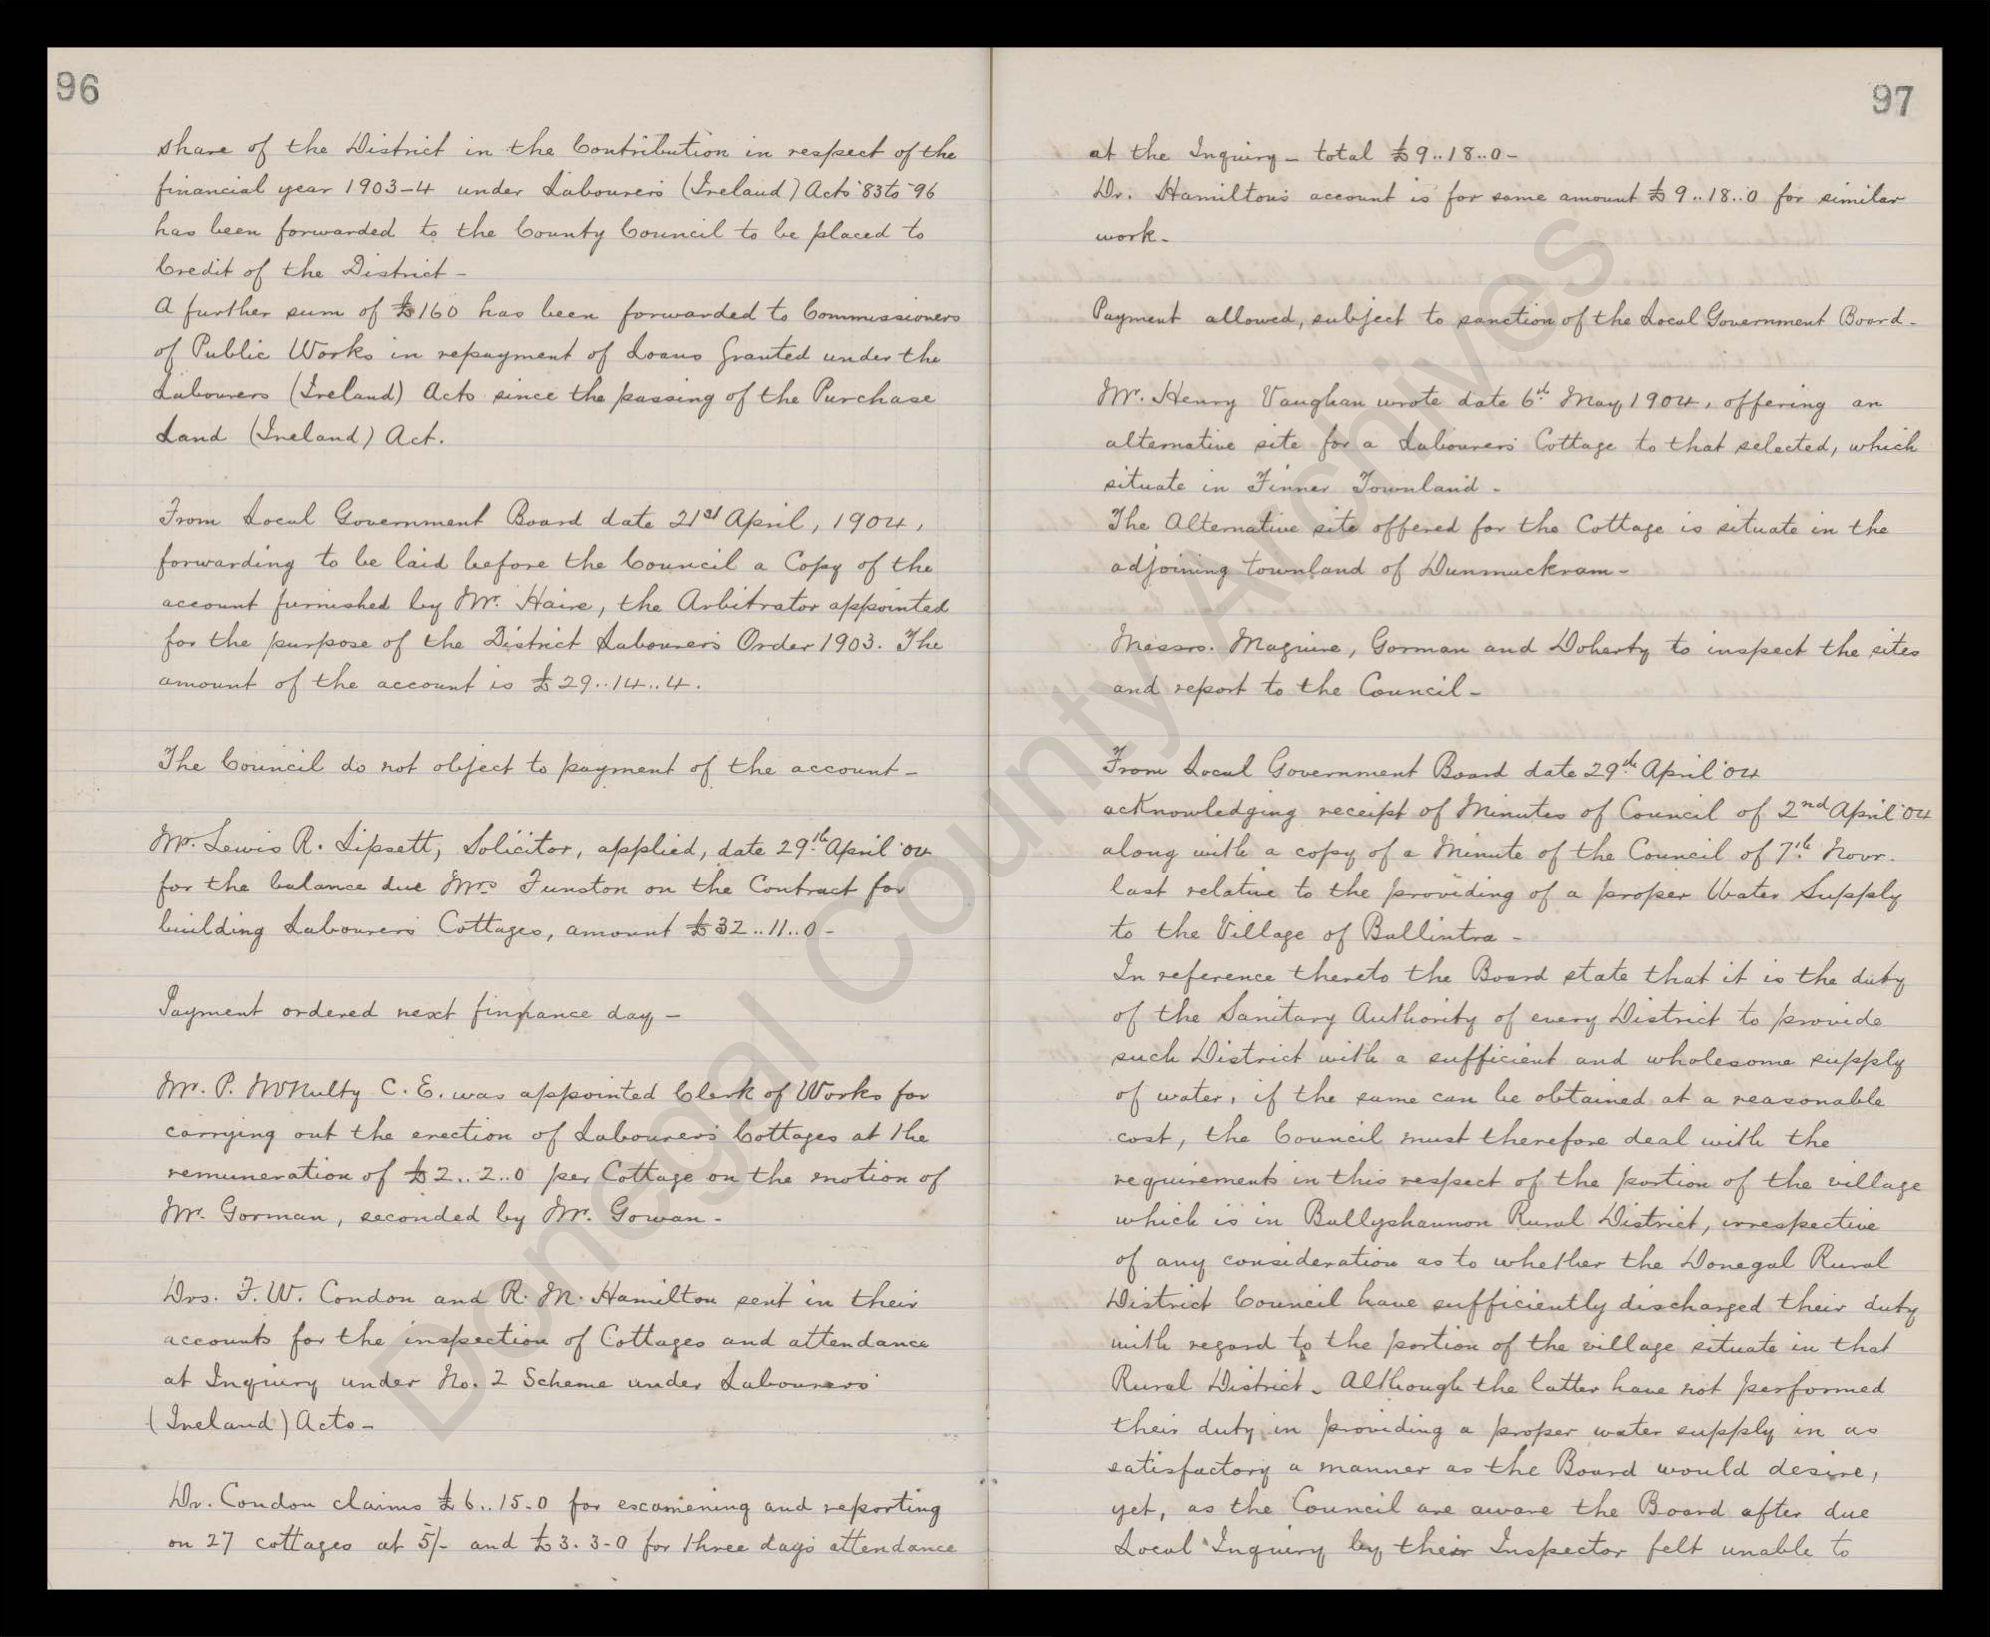 96
share of the District in the Contribution in respect of the
financial year 1903-4 under Labourers (Ireland) Acts '83 to '96
has been forwarded to the County Council to be placed to
Credit of the District -
A further sum of £160 has been forwarded to Commissioners
of Public Works in repayment of Loans granted under the
Labourers (Ireland) Acts since the passing of the Purchase
Land (Ireland) Act.
From Local Government Board date 21st April, 1904,
forwarding to be laid before the Council a Copy of the
account furnished by Mr. Haire, the Arbitrator appointed
for the purpose of the District Labourers Order 1903. The
amount of the account is £29..14..4.
The Council do not object to payment of the account -
Mr. Lewis R. Lipsett, Solicitor, applied, date 29th April '04
for the balance due Mrs Funston on the Contract for
building Labourers Cottages, amount £32..11..0 -
Payment ordered next finnance day -
Mr. P. McNulty C.E. was appointed Clerk of Works for
carrying out the erection of Labourers' Cottages at the
remuneration of £2..2..0 per Cottage on the motion of
Mr. Gorman, seconded by Mr. Gowan -
Drs. F. W. Condon and R. M. Hamilton sent in their
accounts for the inspection of Cottages and attendance
at Inquiry under No. 2 Scheme under Labourers'
(Ireland) Acts -
Dr. Condon claims £6..15-0 for escamening and reporting
on 27 cottages at 5/- and £3. 3-0 for three days attendance
97
at the Inquiry - total £9..18..0 -
Dr. Hamilton's account is for same amount £9..18..0 for similar
work -
Payment allowed, subject to sanction of the Local Government Board -
Mr. Henry Vaughan wrote date 6th May 1904, offering an
alternative site for a Labourers' Cottage to that selected, which
situate in Finner Townland -
The Alternative site offered for the Cottage is situate in the
adjoining townland of Dunmuckram -
Messrs. Maguire, Gorman and Doherty to inspect the sites
and report to the Council -
From Local Government Board date 29th April '04
acknowledging receipt of Minutes of Council of 2nd April '04
along with a copy of a Minute of the Council of 7th Novr.
last relative to the providing of a proper Water Supply
to the Village of Ballintra -
In reference thereto the Board state that it is the duty
of the Sanitary Authority of every District to provide
such District with a sufficient and wholesome supply
of water, if the same can be obtained at a reasonable
cost, the Council must therefore deal with the
requirements in this respect of the portion of the village
which is in Ballyshannon Rural District, irrespective
of any consideration as to whether the Donegal Rural
District Council have sufficiently discharged their duty
with regard to the portion of the village situate in that
Rural District - Although the latter have not performed
their duty in providing a proper water supply in as
satisfactory a manner as the Board would desire,
yet, as the Council are aware the Board after due
Local Inquiry by their Inspector felt unable to
Donegal County Archives